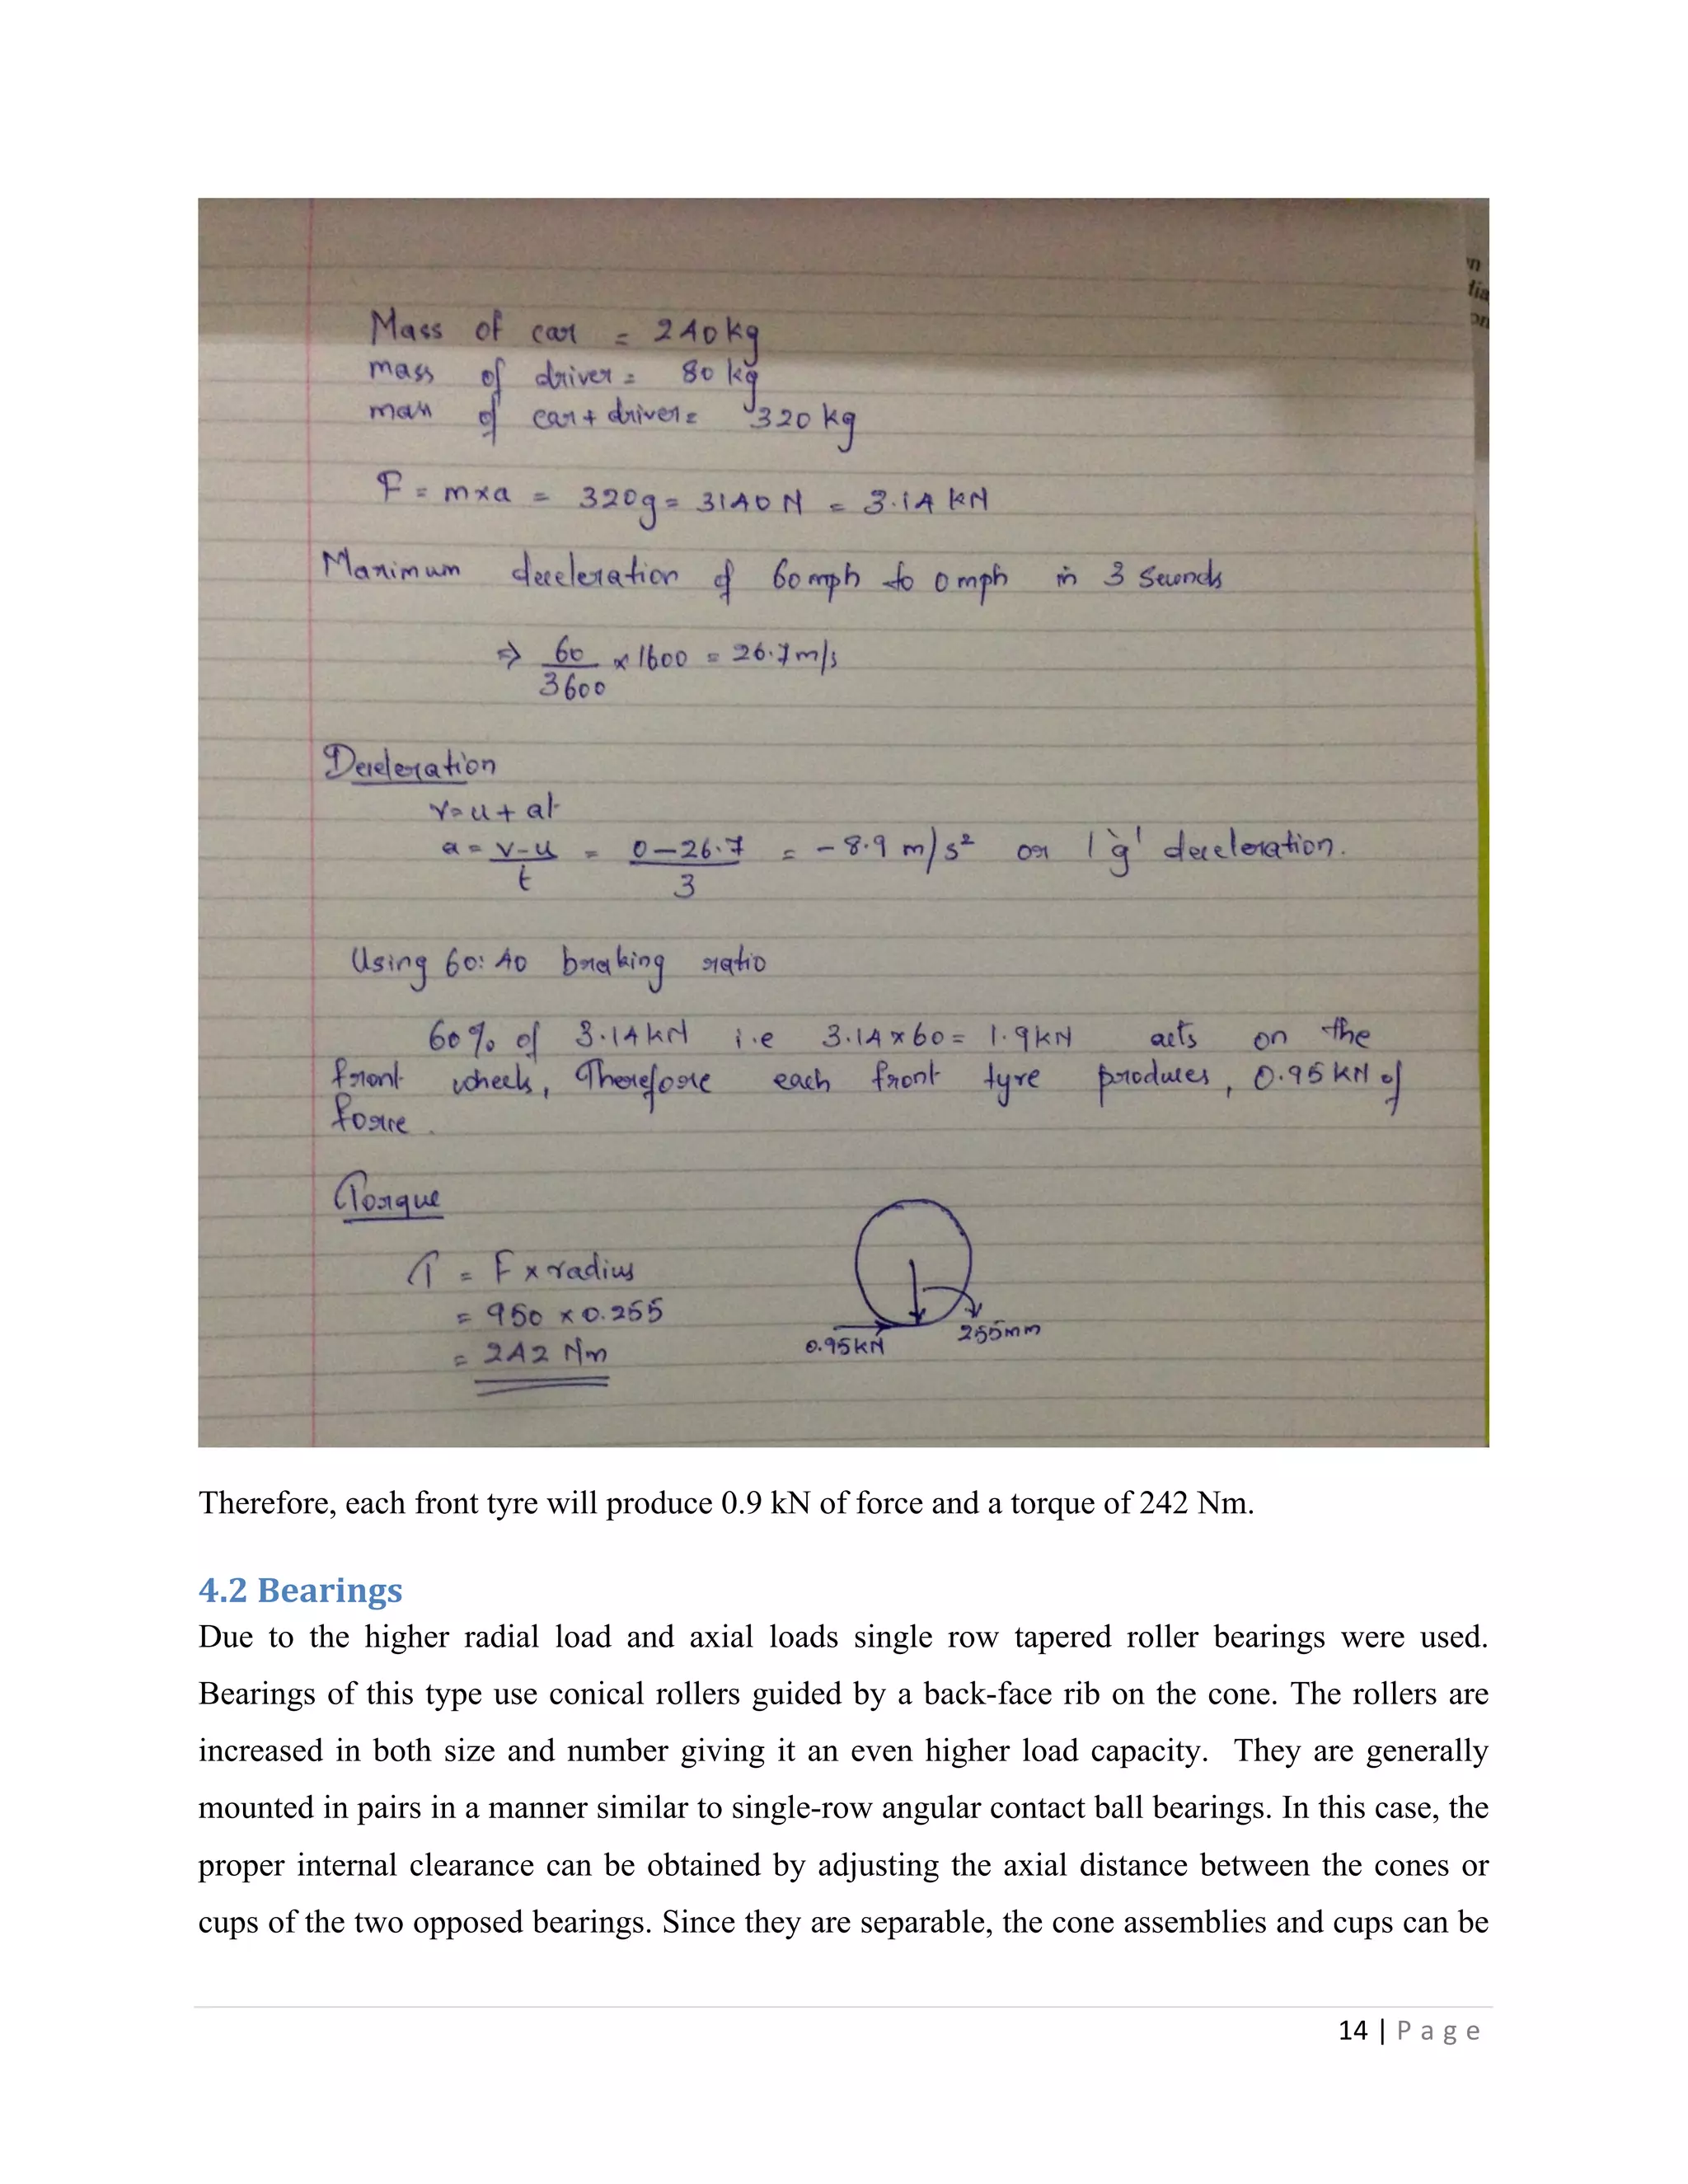 n
tia
on
Mass of car = 240kg
mass of driver = 80 kg
mass of car + driver = 320 kg
F = m×a = 320g = 3140 N = 3.14 kN
Maximum deceleration of 60mph to 0 mph in 3 seconds
⇒ 60/3600 × 1600 = 26.7 m/s
Deceleration
v=u+at
a = v-u/t = 0-26.7/3 = -8.9 m/s² or 1 'g' deceleration.
Using 60:40 braking ratio
60% of 3.14kN i.e 3.14×60 = 1.9kN acts on the
front wheels, Therefore each front tyre produces, 0.95 kN of
force.
Torque
T = F × radius
= 950 × 0.255
= 242 Nm
0.95kN 255mm
Therefore, each front tyre will produce 0.9 kN of force and a torque of 242 Nm.
4.2 Bearings
Due to the higher radial load and axial loads single row tapered roller bearings were used.
Bearings of this type use conical rollers guided by a back-face rib on the cone. The rollers are
increased in both size and number giving it an even higher load capacity. They are generally
mounted in pairs in a manner similar to single-row angular contact ball bearings. In this case, the
proper internal clearance can be obtained by adjusting the axial distance between the cones or
cups of the two opposed bearings. Since they are separable, the cone assemblies and cups can be
14 | P a g e